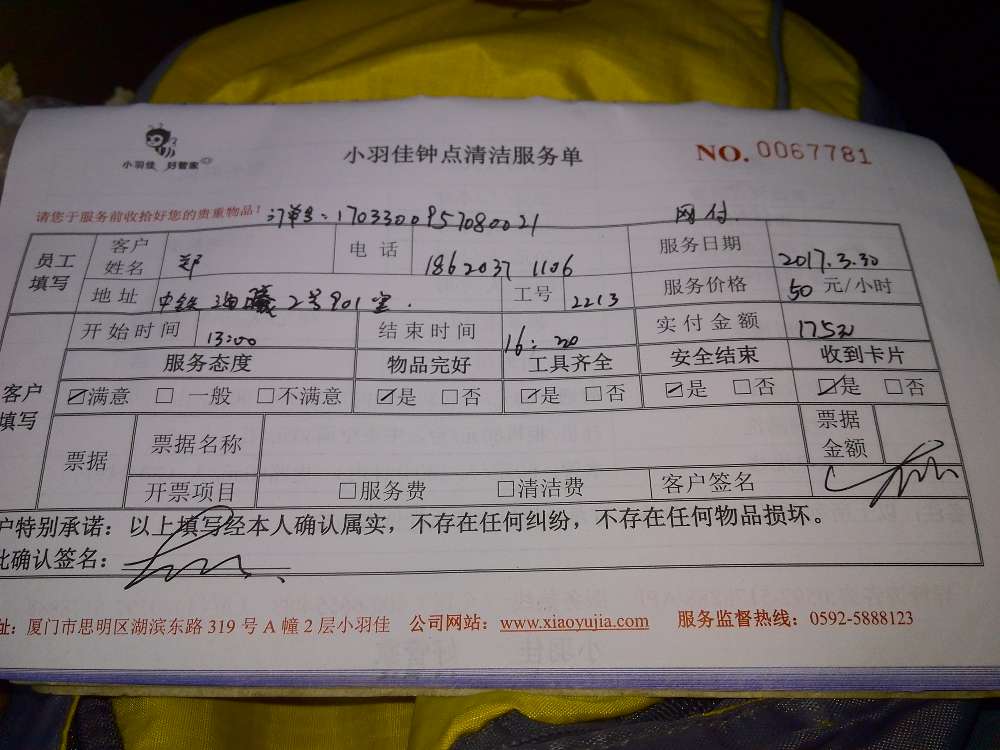 小羽佳 好管家 小羽佳钟点清洁服务单 NO. 0067781
请您于服务前收拾好您的贵重物品! 订单号: 1703300957080021 网付.
员工填写 客户姓名 郑 电话 18620371106 服务日期 2017.3.30
地址 中铁海曦2号901室. 工号 2213 服务价格 50 元/小时
客户填写 开始时间 13:00 结束时间 16:20 实付金额 175元
服务态度 物品完好 工具齐全 安全结束 收到卡片
☑满意 □ 一般 □不满意 ☑是 □否 ☑是 □否 ☑是 □否 ☑是 □否
票据 票据名称 票据金额
开票项目 □服务费 □清洁费 客户签名
户特别承诺: 以上填写经本人确认属实,不存在任何纠纷,不存在任何物品损坏。
此确认签名:
址: 厦门市思明区湖滨东路 319 号 A 幢 2 层小羽佳 公司网站: www.xiaoyujia.com 服务监督热线: 0592-5888123